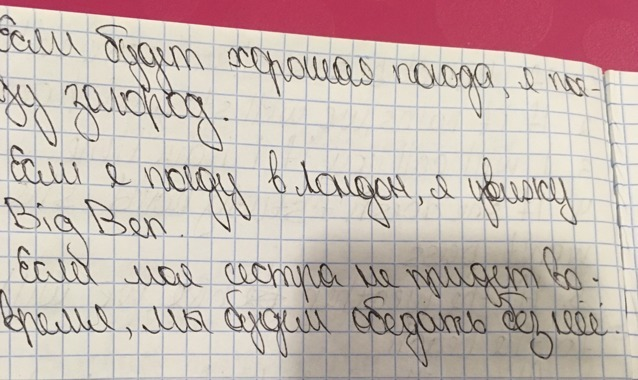 Если будет хорошая погода, я пое-
ду загород.
Если я поеду в Лондон, я увижу
Big Ben.
Если моя сестра не придет во-
время, мы будим обедать без неё.